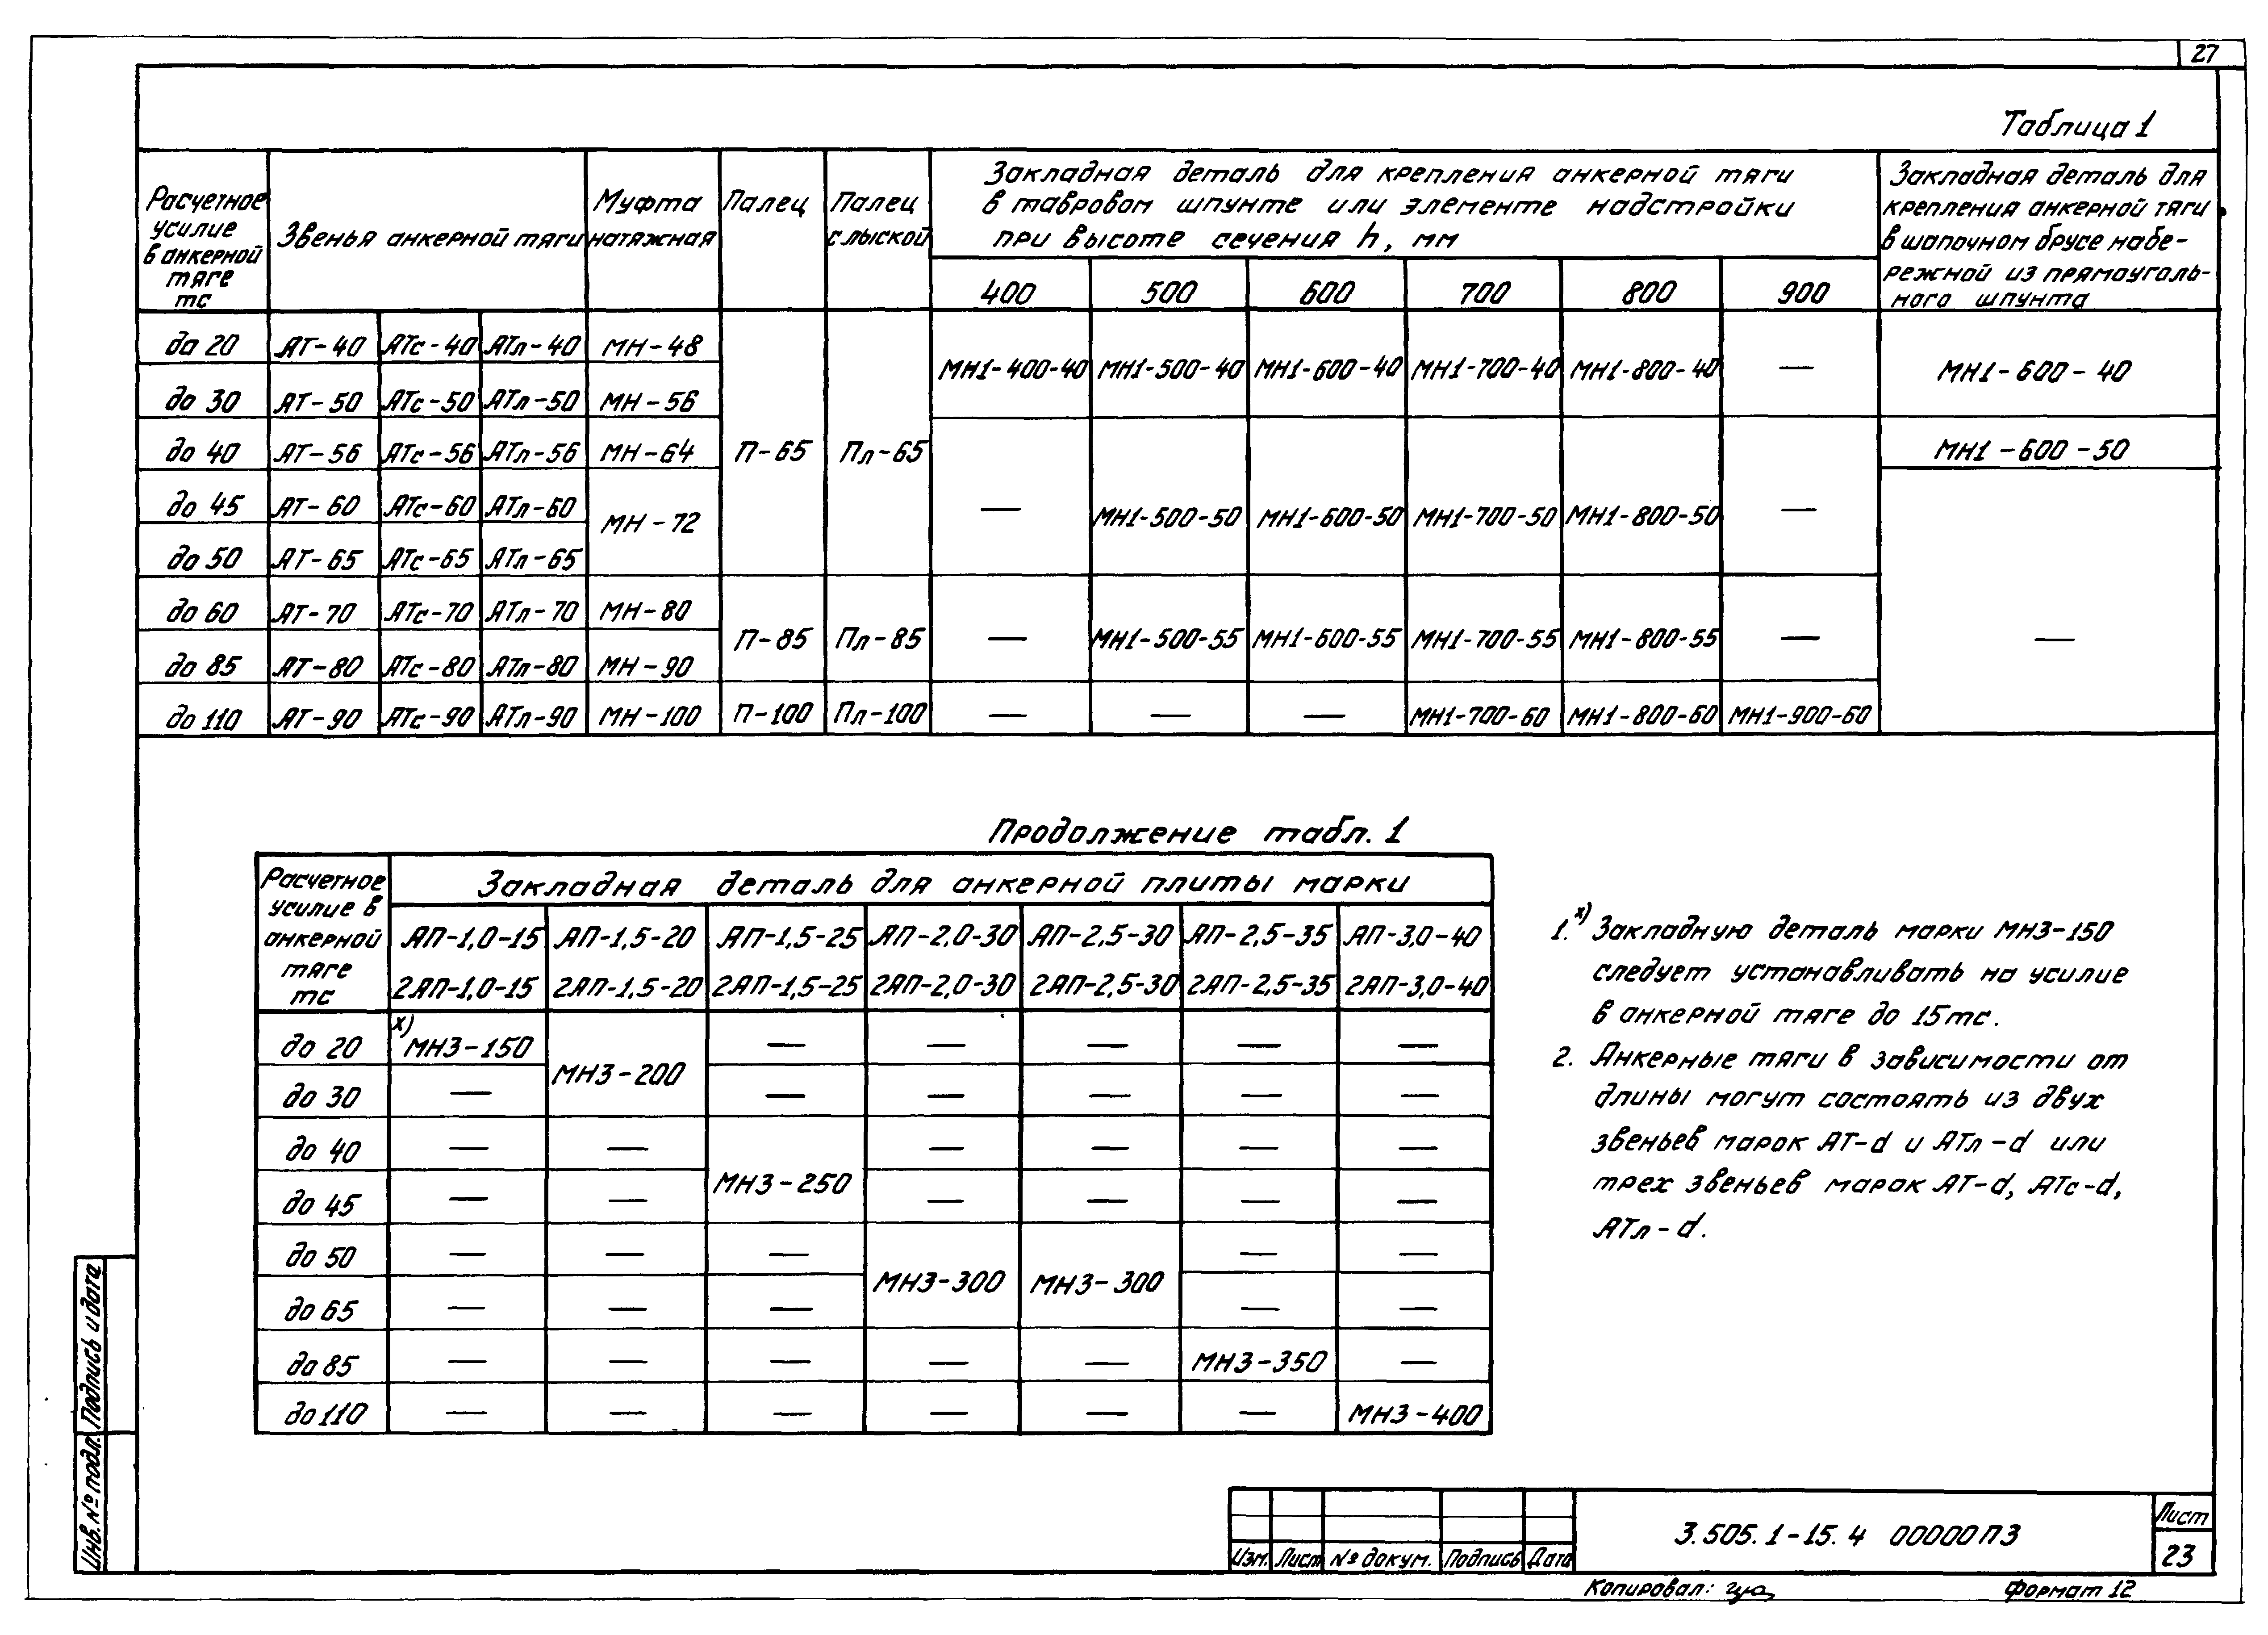 27
Таблица 1
Расчетное усилие в анкерной тяге тс
Звенья анкерной тяги
Муфта натяжная
Палец
Палец с лыской
Закладная деталь для крепления анкерной тяги
в тавровом шпунте или элементе надстройки
при высоте сечения h, мм
Закладная деталь для
крепления анкерной тяги
в шапочном брусе набе-
режной из прямоуголь-
ного шпунта
400 500 600 700 800 900
до 20 АТ-40 АТс-40 АТл-40 МН-48
МН1-400-40 МН1-500-40 МН1-600-40 МН1-700-40 МН1-800-40 — МН1-600-40
до 30 АТ-50 АТс-50 АТл-50 МН-56
до 40 АТ-56 АТс-56 АТл-56 МН-64 П-65 Пл-65 МН1-600-50
до 45 АТ-60 АТс-60 АТл-60
МН-72 — МН1-500-50 МН1-600-50 МН1-700-50 МН1-800-50 —
до 50 АТ-65 АТс-65 АТл-65
до 60 АТ-70 АТс-70 АТл-70 МН-80
П-85 Пл-85 — МН1-500-55 МН1-600-55 МН1-700-55 МН1-800-55 — —
до 85 АТ-80 АТс-80 АТл-80 МН-90
до 110 АТ-90 АТс-90 АТл-90 МН-100 П-100 Пл-100 — — — МН1-700-60 МН1-800-60 МН1-900-60
Продолжение табл. 1
Расчетное
усилие в
анкерной
тяге
тс
Закладная деталь для анкерной плиты марки
АП-1,0-15 АП-1,5-20 АП-1,5-25 АП-2,0-30 АП-2,5-30 АП-2,5-35 АП-3,0-40
2АП-1,0-15 2АП-1,5-20 2АП-1,5-25 2АП-2,0-30 2АП-2,5-30 2АП-2,5-35 2АП-3,0-40
до 20 х) МН3-150 — — — — —
МН3-200
до 30 — — — — — —
до 40 — — — — — —
МН3-250
до 45 — — — — — —
до 50 — — — — —
МН3-300 МН3-300
до 65 — — — — —
до 85 — — — — — МН3-350 —
до 110 — — — — — — МН3-400
1. х) Закладную деталь марки МН3-150
следует устанавливать на усилие
в анкерной тяге до 15тс.
2. Анкерные тяги в зависимости от
длины могут состоять из двух
звеньев марок АТ-d и АТл-d или
трех звеньев марок АТ-d, АТс-d,
АТл-d.
Подпись и дата
Инв. № подл.
Изм. Лист № докум. Подпись Дата
3.505.1-15.4 00000ПЗ
Лист
23
Копировал:
Формат 12